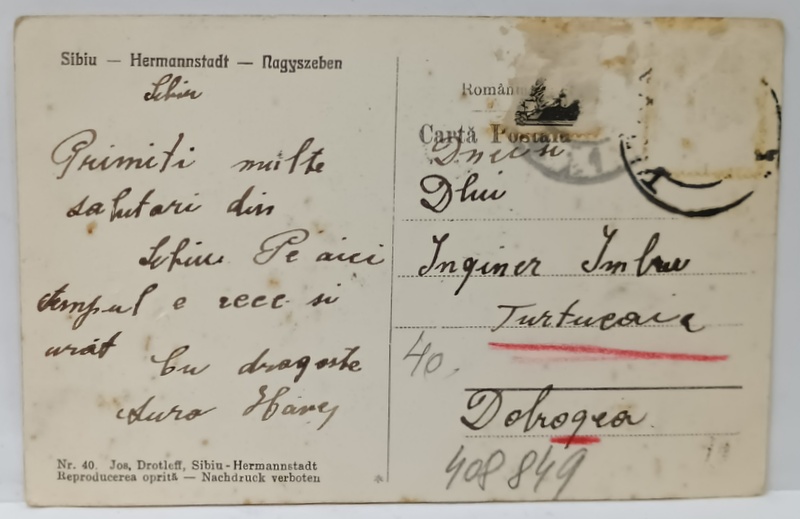 Sibiu — Hermannstadt — Nagyszeben
Sibiu
Primiti multe
salutari din
Sibiu Pe aici
timpul e rece si
urât
Cu dragoste
Aura
Nr. 40. Jos, Drotleff, Sibiu-Hermannstadt
Reproducerea oprită — Nachdruck verboten
*
Român
Cartă Postală
Dnei si
Dlui
Inginer
Turtucaia
40.
Dobrogea
408 849